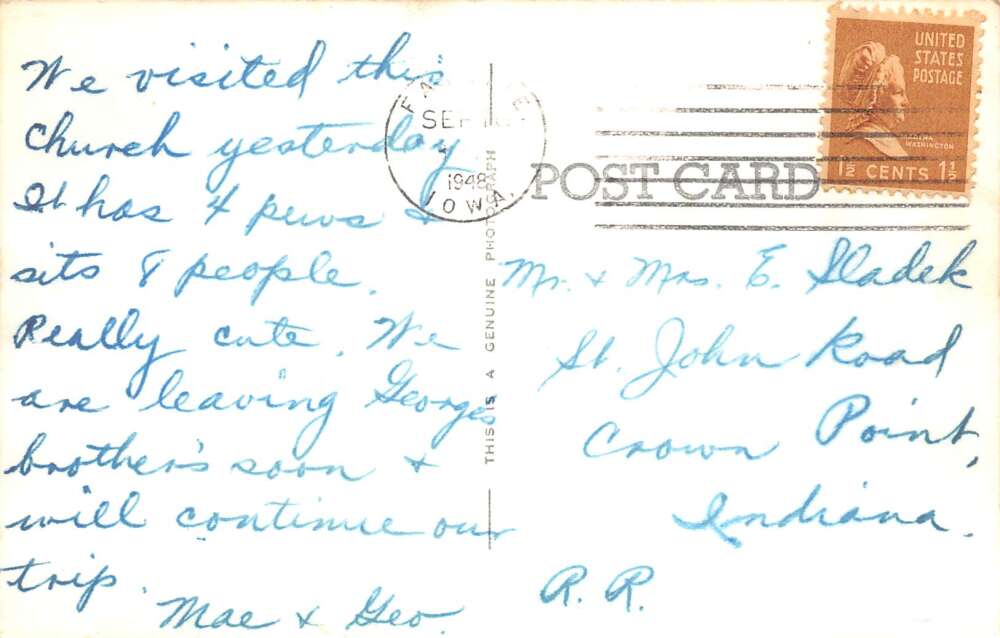 We visited this
Church yesterday
It has 4 pews &
sits 8 people.
Really cute. We
are leaving George's
brother's soon &
will continue our
trip.
Mae & Geo.
THIS IS A GENUINE PHOTOGRAPH
SEP
1948
IOWA.
POST CARD
UNITED
STATES
POSTAGE
MARTHA
WASHINGTON
1½ CENTS 1½
Mr. & Mrs. E. Sladek
St. John Road
Crown Point,
Indiana.
R. R.